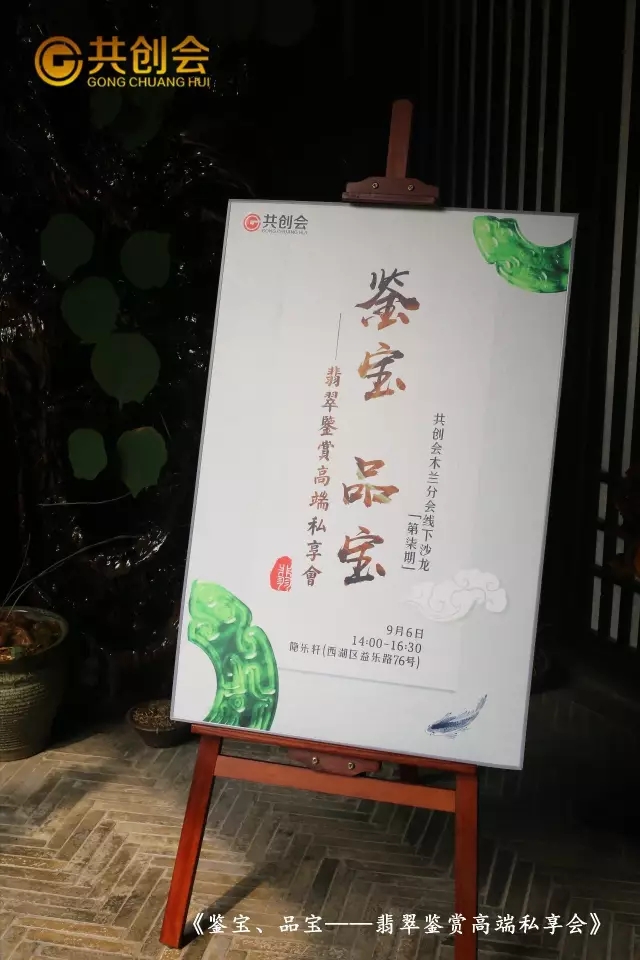 共创会
GONG CHUANG HUI
共创会
GONG CHUANG HUI
鉴宝 品宝
——翡翠鑒賞高端私享會
翡
共创会木兰分会线下沙龙
「第柒期」
9月6日
14:00-16:30
隐乐轩(西湖区益乐路76号)
《鉴宝、品宝——翡翠鉴赏高端私享会》